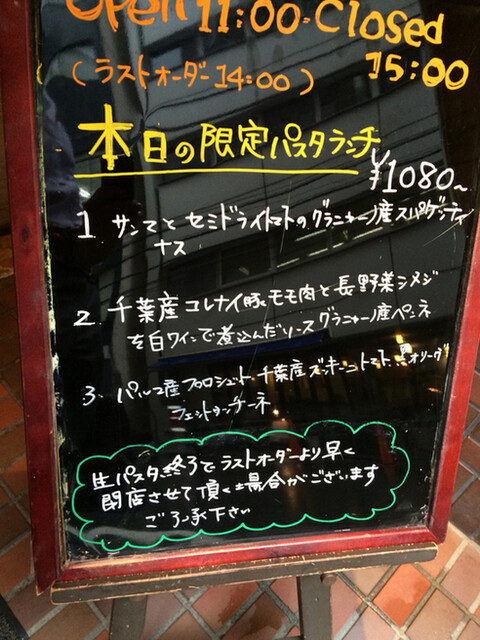 Open 11:00-Closed
(ラストオーダー14:00) 15:00
本日の限定パスタランチ
¥1080~
1. サンマとセミドライトマトのグラニャーノ産スパゲッティ
ナス
2. 千葉産コレナイ豚モモ肉と長野菜シメジ
を白ワインで煮込んだソース グラニャーノ産ペンネ
3. パルマ産プロシュット、千葉産ズッキーニ、トマト、黒オリーブ
フェットゥチーネ
生パスタ終了でラストオーダーより早く
閉店させて頂く場合がございます
ご了承下さい